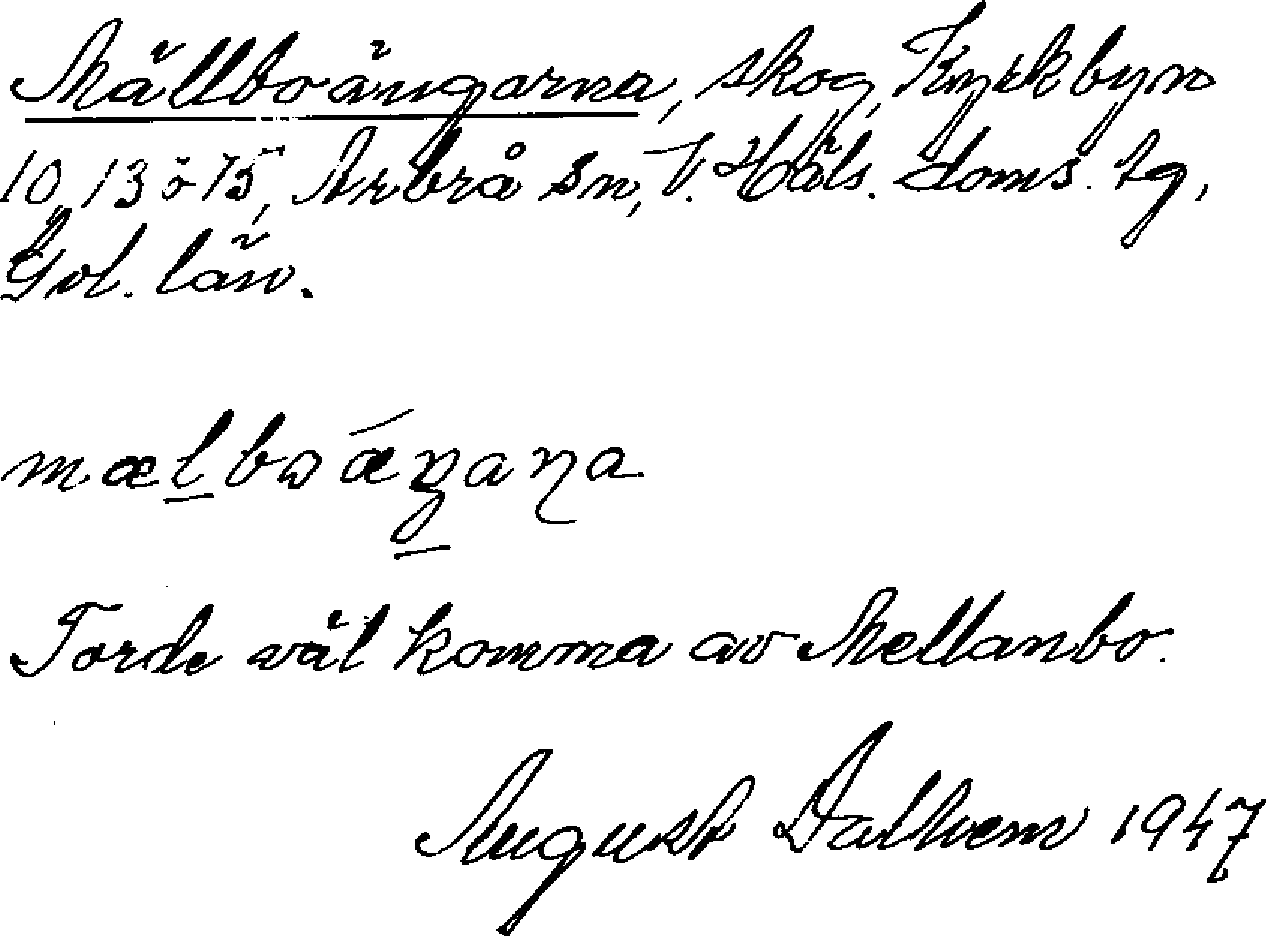 Mällboängarna, skog, Kyrkbyn
10, 13 o 15, Arbrå sn, V. Häls. doms. tg,
Gvl. län.
mælbωǽŋaɳa
Torde väl komma av Mellanbo.
August Dalhem 1947